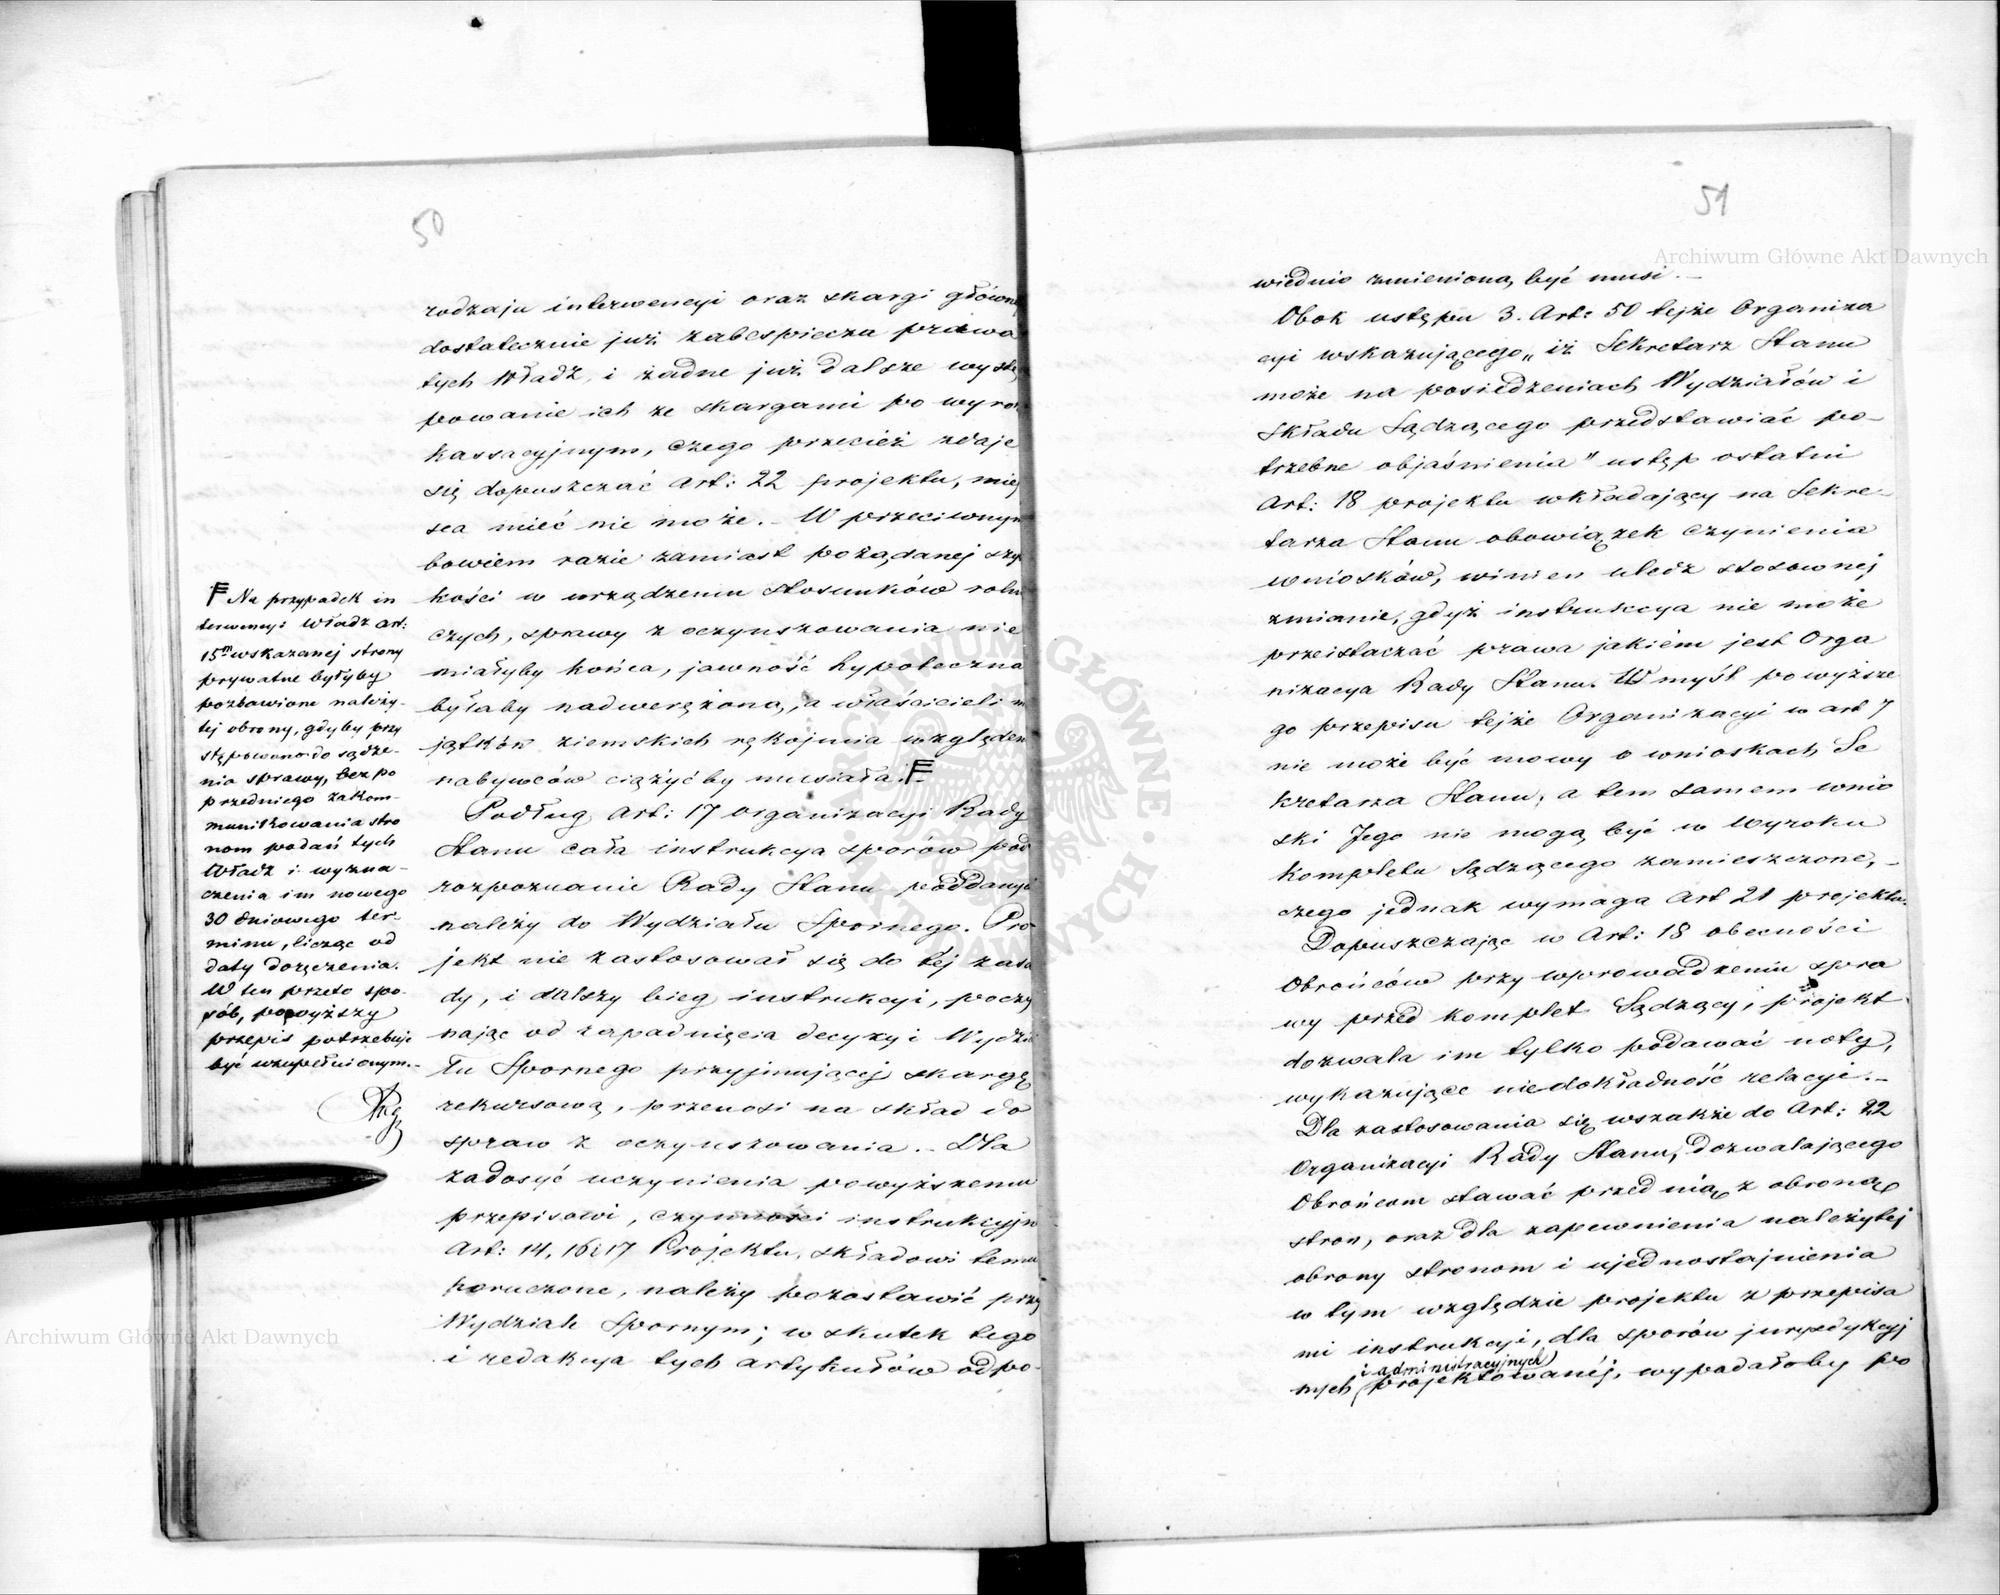 50
rodzaju interwencyi oraz skargi główne
dostatecznie już zabespiecza prawa
tych Władz, i żadne już dalsze wystę
powanie ich ze skargami po wyro
kassacyjnym, czego przecież zdaje
się dopuszczać Art: 22 projektu, miej
sca mieć nie może. – W przeciwnym
bowiem razie zamiast pożądanej szyb
kości w urządzeniu stosunków rolni
czych, sprawy z oczynszowania nie
miałyby końca, jawność hypoteczna
byłaby nadwerężoną, a właścicieli m
jątków ziemskich rękojmia względem
nabywców ciążyćby musiała. F
Podług Art: 17 organizacyi Rady
Stanu cała instrukcya sporów pod
rozpoznanie Rady Stanu poddanych
należy do Wydziału Spornego. Pro
jekt nie zastosował się do téj zasa
dy, i dalszy bieg instrukcyi, poczy
nając od zapadnięcia decyzyi Wydzia
łu Spornego przyjmującéj skargę
rekursową, przenosi na skład do
spraw z oczynszowania. – Dla
zadosyć uczynienia powyższemu
przepisowi, czynności instrukcyjn
Art: 14, 16 i 17 Projektu, składowi temu
poruczone, należy pozostawić przy
Wydziale Spornym; w skutek tego
i redakcya tych artykułów odpo-
F Na przypadek in
terwencyi Władz art:
15m wskazanej strony
prywatne byłyby
pozbawione należy-
tej obrony, gdyby przy
stępowano do sądze-
nia sprawy, bez po
przedniego zakom-
munikowania stro
nom podań tych
Władz i wyzna-
czenia im nowego
30 dniowego ter-
minu, licząc od
daty doręczenia.
W ten przeto spo-
sób, powyższy
przepis potrzebuje
być uzupełnionym. –
51
wiednio zmienioną być musi. –
Obok ustępu 3. Art: 50 tejże Organiza
cyi wskazującego „iż Sekretarz Stanu
może na posiedzeniach Wydziałów i
Składu Sądzącego przedstawiać po-
trzebne objaśnienia" ustęp ostatni
Art: 18 projektu wkładający na Sekre-
tarza Stanu obowiązek czynienia
wniosków, winien uledz stosownej
zmianie, gdyż instrukcya nie może
przeistaczać prawa jakiém jest Orga
nizacya Rady Stanu. W myśl powyższe
go przepisu tejże Organizacyi w art 7
nie może być mowy o wnioskach Se
kretarza Stanu, a tem samem wnio
ski Jego nie mogą być w Wyroku
kompletu Sądzącego zamieszczone, –
czego jednak wymaga Art 21 projektu.
Dopuszczając w Art: 18 obecności
Obrońców przy wprowadzeniu spra
wy przed komplet Sądzący, projekt
dozwala im tylko podawać noty,
wykazujące niedokładność relacyi. –
Dla zastosowania się wszakże do Art: 22
Organizacyi Rady Stanu, dozwalającego
Obrońcom stawać przed nią z obroną
stron, oraz dla zapewnienia należytej
obrony stronom i ujednostajnienia
w tym względzie projektu z przepisa
mi instrukcyi, dla sporów juryzdykcyj
i administracyjnych
nych projektowanéj, wypadałoby po
Archiwum Główne Akt Dawnych
Archiwum Główne Akt Dawnych
ARCHIWUM GŁÓWNE AKT DAWNYCH